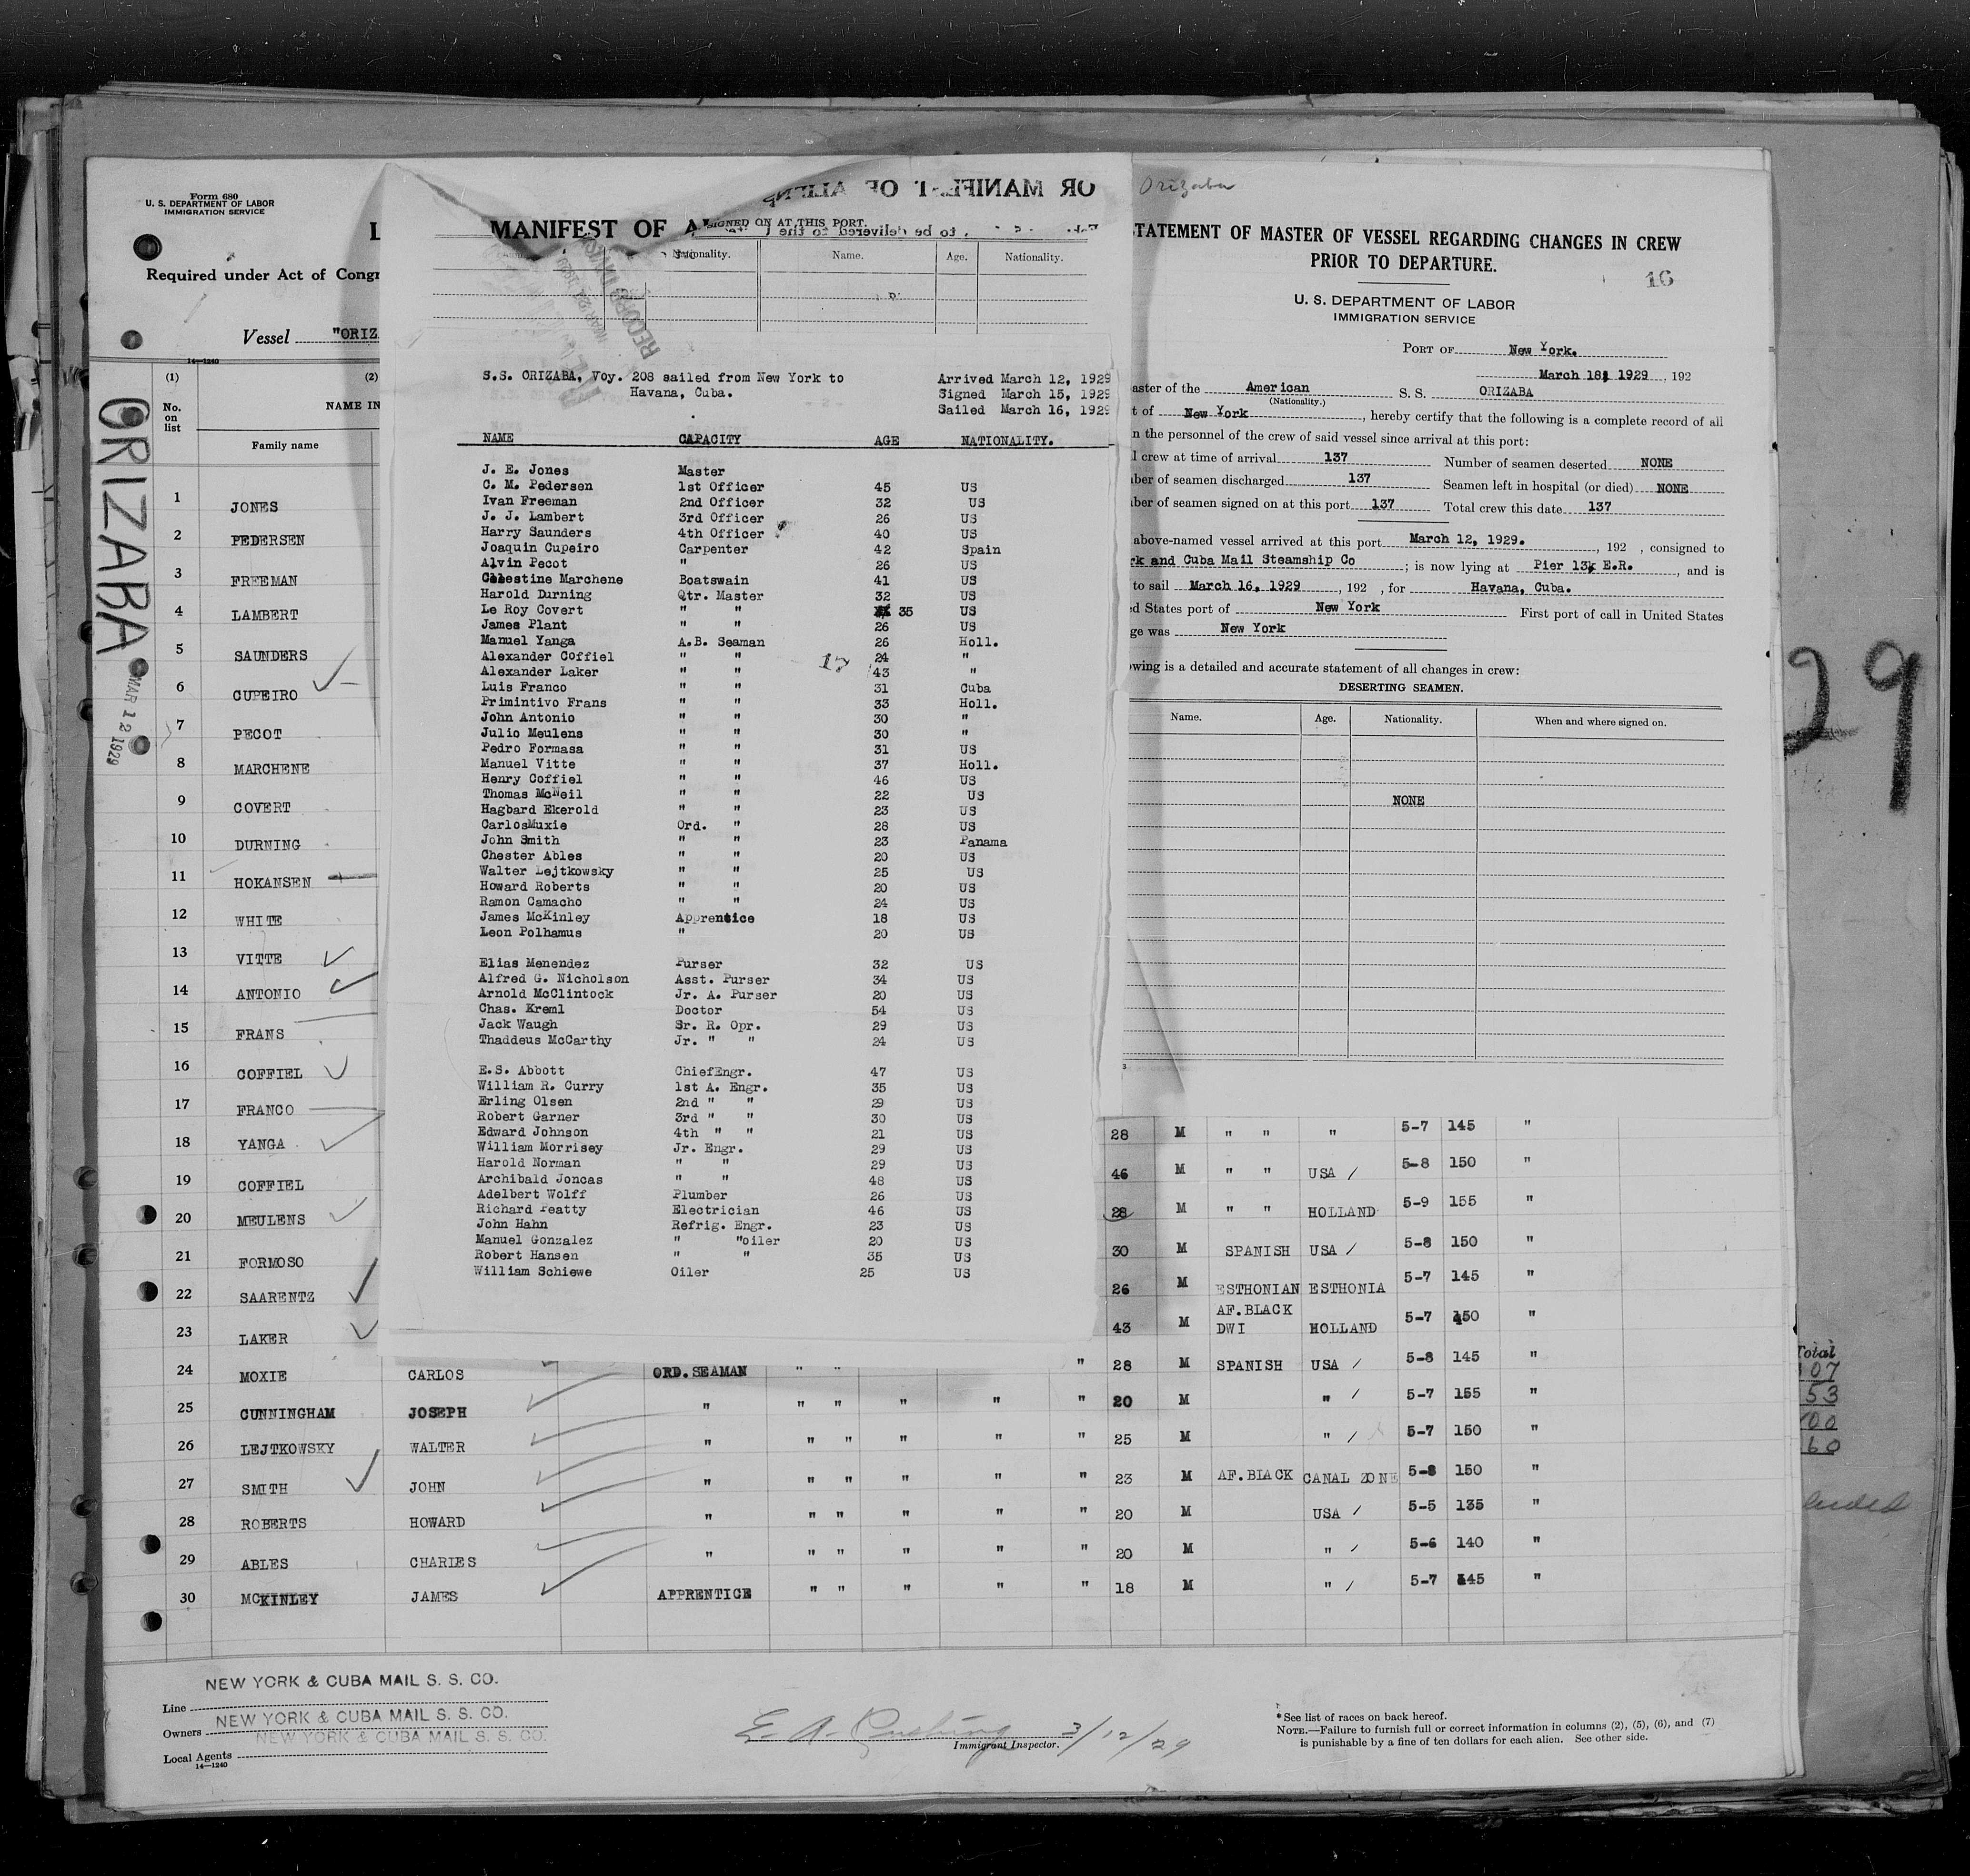 Form 680
U. S. DEPARTMENT OF LABOR
IMMIGRATION SERVICE
Required under Act of Congr
Vessel "ORIZ
14—1240
(1)
(2)
No. on list
NAME IN
Family name
ORIZABA
MAR 12 1929
1 JONES
2 PEDERSEN
3 FREEMAN
4 LAMBERT
5 SAUNDERS
6 CUPEIRO
7 PECOT
8 MARCHENE
9 COVERT
10 DURNING
11 HOKANSEN
12 WHITE
13 VITTE
14 ANTONIO
15 FRANS
16 COFFIEL
17 FRANCO
18 YANGA
19 COFFIEL
20 MEULENS
21 FORMOSO
22 SAARENTZ
23 LAKER
OR MANIFEST OF ALIEN
MANIFEST OF A
SIGNED ON AT THIS PORT.
, to be delivered to the
Nationality. Name. Age. Nationality.
S.S. ORIZABA, Voy. 208 sailed from New York to Arrived March 12, 1929
Havana, Cuba. Signed March 15, 1929
Sailed March 16, 1929
NAME CAPACITY AGE NATIONALITY.
J. E. Jones Master
C. M. Pedersen 1st Officer 45 US
Ivan Freeman 2nd Officer 32 US
J. J. Lambert 3rd Officer 26 US
Harry Saunders 4th Officer 40 US
Joaquin Cupeiro Carpenter 42 Spain
Alvin Pecot " 26 US
Celestine Marchene Boatswain 41 US
Harold Durning Qtr. Master 32 US
Le Roy Covert " " 35 US
James Plant " " 26 US
Manuel Yanga A.B. Seaman 26 Holl.
Alexander Coffiel " " 24 "
17
Alexander Laker " " 43 "
Luis Franco " " 31 Cuba
Primintivo Frans " " 33 Holl.
John Antonio " " 30 "
Julio Meulens " " 30 "
Pedro Formasa " " 31 US
Manuel Vitte " " 37 Holl.
Henry Coffiel " " 46 US
Thomas McNeil " " 22 US
Hagbard Ekerold " " 23 US
CarlosMuxie Ord. " 28 US
John Smith " " 23 Panama
Chester Ables " " 20 US
Walter Lejtkowsky " " 25 US
Howard Roberts " " 20 US
Ramon Camacho " " 24 US
James McKinley Apprentice 18 US
Leon Polhamus " 20 US
Elias Menendez Purser 32 US
Alfred G. Nicholson Asst. Purser 34 US
Arnold McClintock Jr. A. Purser 20 US
Chas. Kreml Doctor 54 US
Jack Waugh Sr. R. Opr. 29 US
Thaddeus McCarthy Jr. " " 24 US
E.S. Abbott ChiefEngr. 47 US
William R. Curry 1st A. Engr. 35 US
Erling Olsen 2nd " " 29 US
Robert Garner 3rd " " 30 US
Edward Johnson 4th " " 21 US
William Morrisey Jr. Engr. 29 US
Harold Norman " " 29 US
Archibald Joncas " " 48 US
Adelbert Wolff Plumber 26 US
Richard Peatty Electrician 46 US
John Hahn Refrig. Engr. 23 US
Manuel Gonzalez " "oiler 20 US
Robert Hansen " " 35 US
William Schiewe Oiler 25 US
Orizaba
STATEMENT OF MASTER OF VESSEL REGARDING CHANGES IN CREW
PRIOR TO DEPARTURE.
16
U. S. DEPARTMENT OF LABOR
IMMIGRATION SERVICE
PORT OF New York.
March 18, 1929, 192
aster of the American S. S. ORIZABA
(Nationality.)
t of New York, hereby certify that the following is a complete record of all
n the personnel of the crew of said vessel since arrival at this port:
l crew at time of arrival 137 Number of seamen deserted NONE
ber of seamen discharged 137 Seamen left in hospital (or died) NONE
ber of seamen signed on at this port 137 Total crew this date 137
above-named vessel arrived at this port March 12, 1929. , 192 , consigned to
rk and Cuba Mail Steamship Co ; is now lying at Pier 13, E.R. , and is
to sail March 16, 1929 , 192 , for Havana, Cuba.
d States port of New York First port of call in United States
ge was New York
wing is a detailed and accurate statement of all changes in crew:
DESERTING SEAMEN.
Name. Age. Nationality. When and where signed on.
NONE
29
28 M " " " 5-7 145 "
46 M " " USA / 5-8 150 "
28 M " " HOLLAND 5-9 155 "
30 M SPANISH USA / 5-8 150 "
26 M ESTHONIAN ESTHONIA 5-7 145 "
43 M AF.BLACK DWI HOLLAND 5-7 150 "
24 MOXIE CARLOS ORD.SEAMAN " " " 28 M SPANISH USA / 5-8 145 "
25 CUNNINGHAM JOSEPH " " " " " " 20 M " / 5-7 155 "
26 LEJTKOWSKY WALTER " " " " " " 25 M " / 5-7 150 "
27 SMITH JOHN " " " " " " 23 M AF.BLACK CANAL ZONE 5-8 150 "
28 ROBERTS HOWARD " " " " " " 20 M USA / 5-5 135 "
29 ABLES CHARLES " " " " " " 20 M " / 5-6 140 "
30 MCKINLEY JAMES APPRENTICE " " " " " 18 M " / 5-7 145 "
Total
07
53
00
60
NEW YORK & CUBA MAIL S. S. CO.
Line
NEW YORK & CUBA MAIL S. S. CO.
Owners
NEW YORK & CUBA MAIL S. S. CO.
Local Agents
14—1240
E. A. 3/12/29
Immigrant Inspector.
* See list of races on back hereof.
NOTE.—Failure to furnish full or correct information in columns (2), (5), (6), and (7)
is punishable by a fine of ten dollars for each alien. See other side.